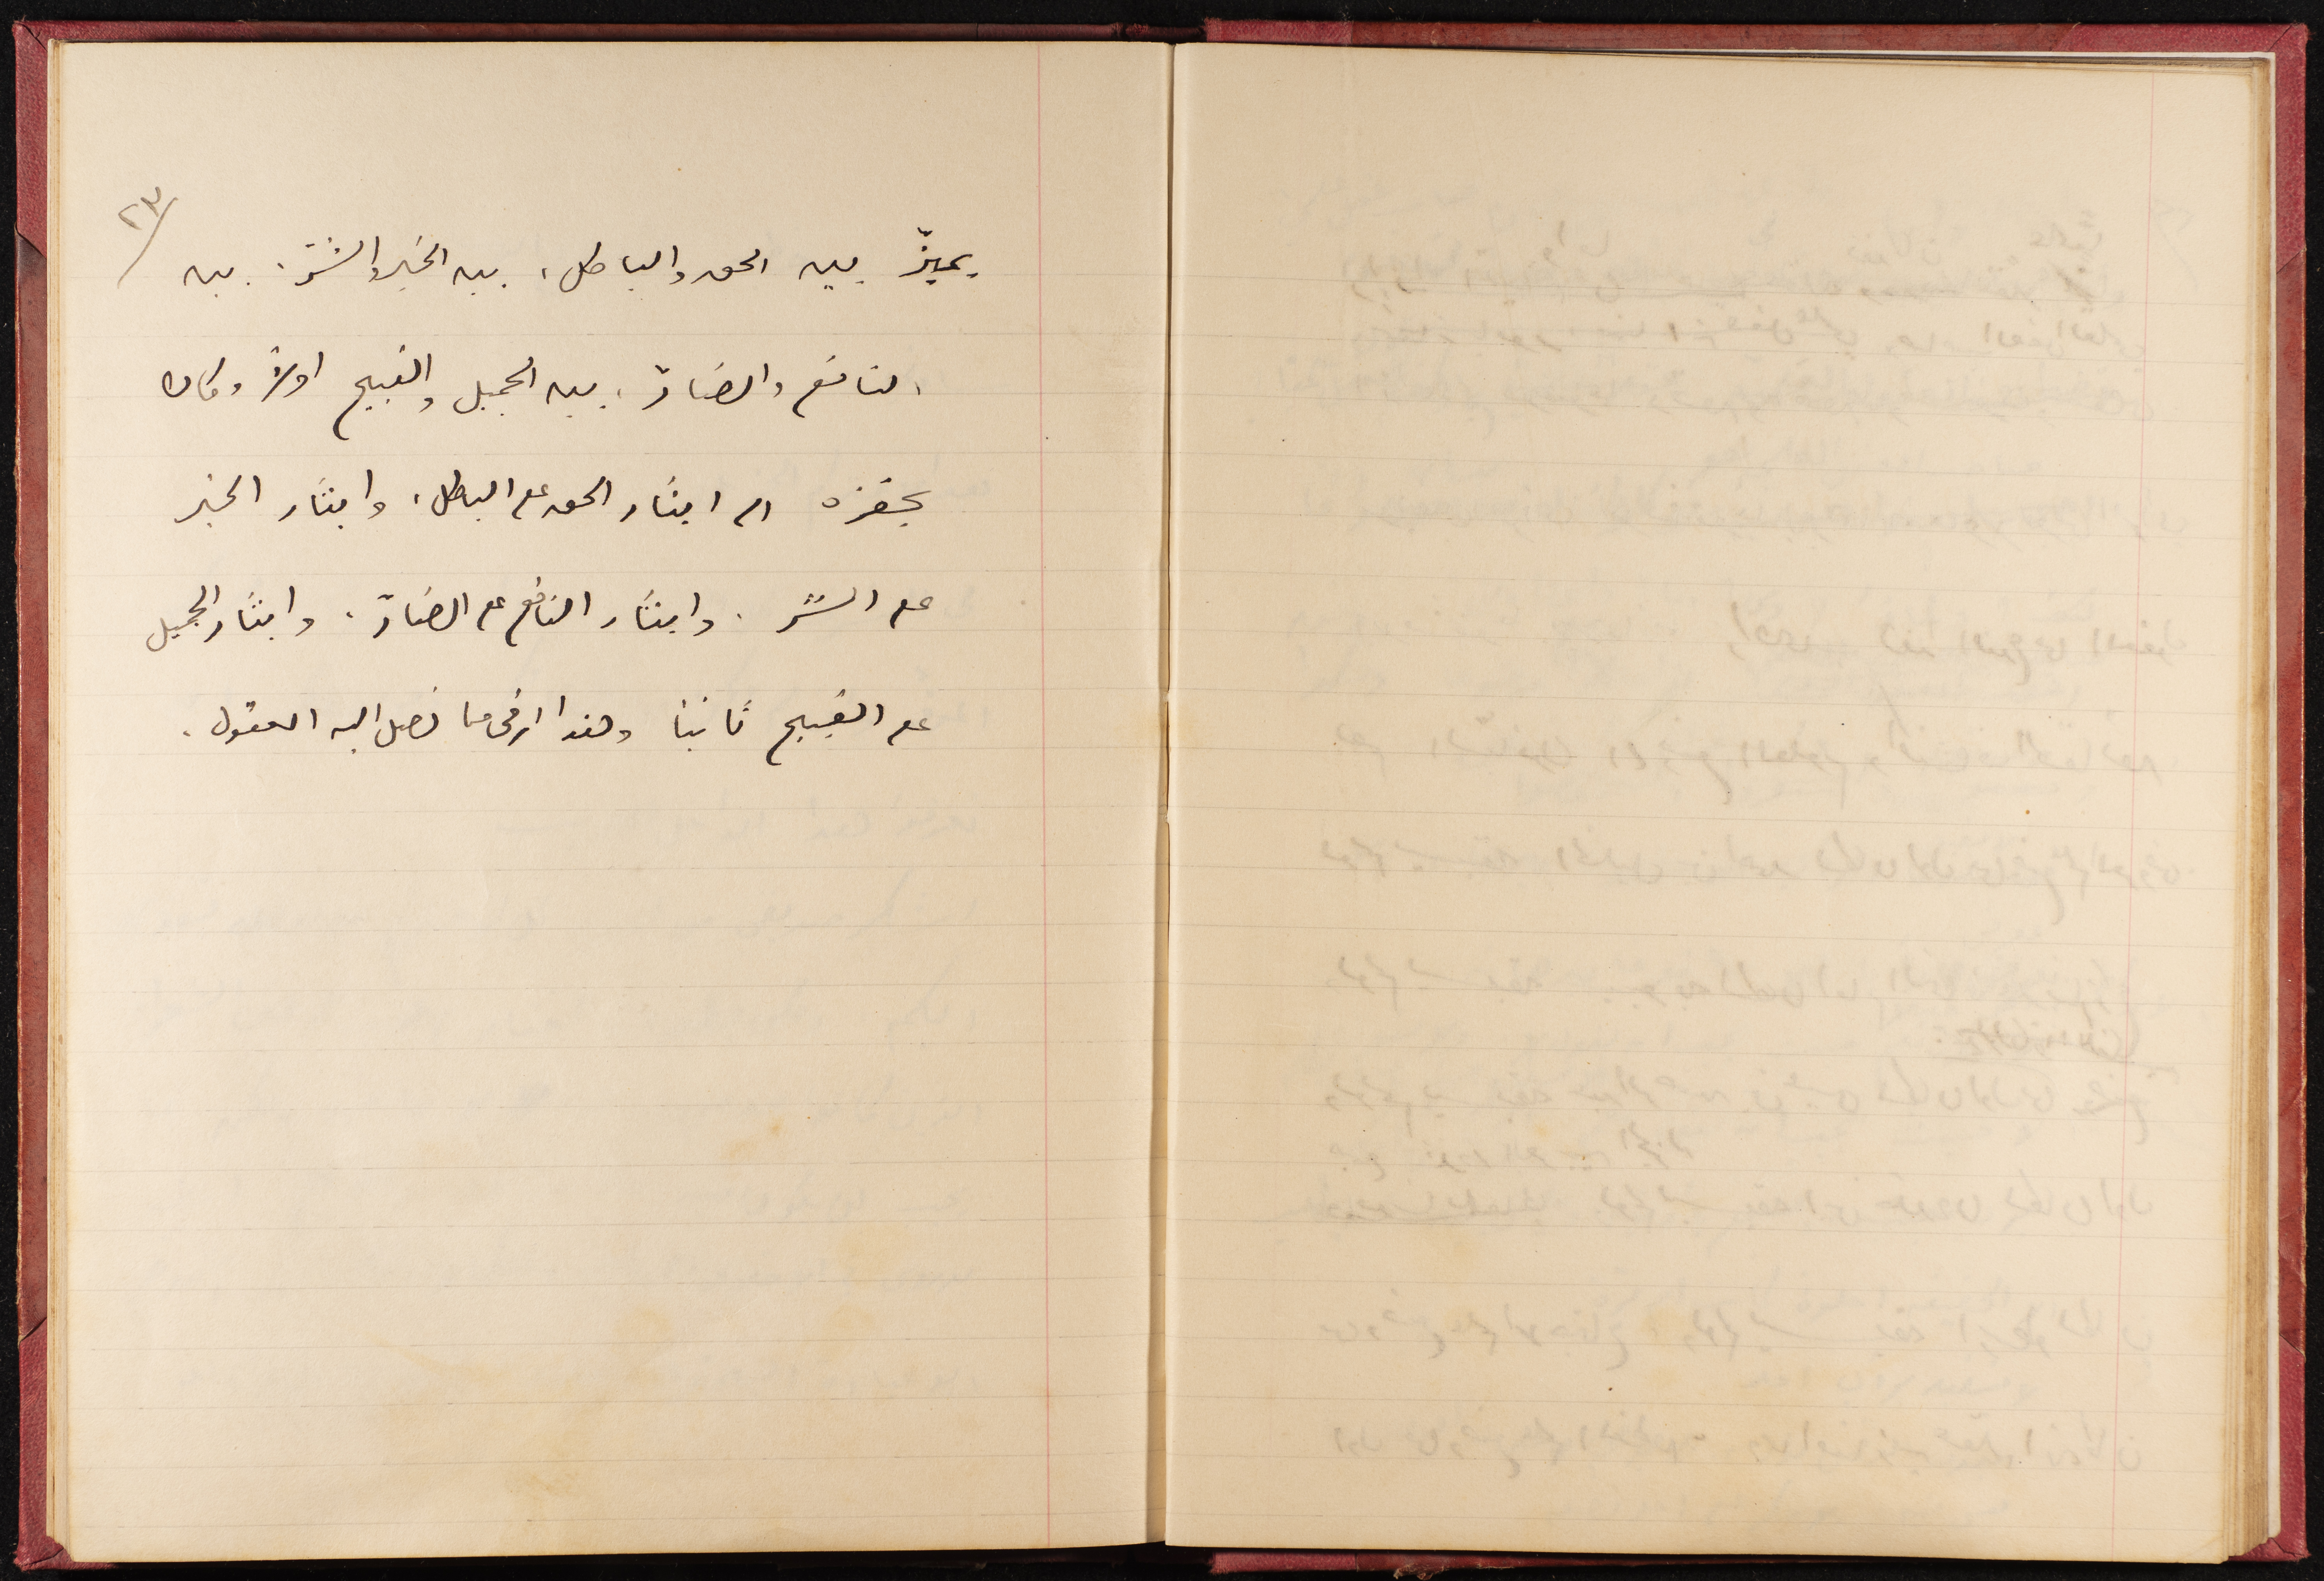 ٢٣/
يميّز بين الحق والباطل، بين الخير والشرّ، بين
النافع والضارّ، بين الجميل والقبيح اولاً وكان
يحفزه الى ايثار الحق على الباطل، وايثار الخير
على الشرّ، وايثار النافع على الضارّ، وايثار الجميل
على القبيح ثانياً وهذا ارقى ما تصل اليه العقول.